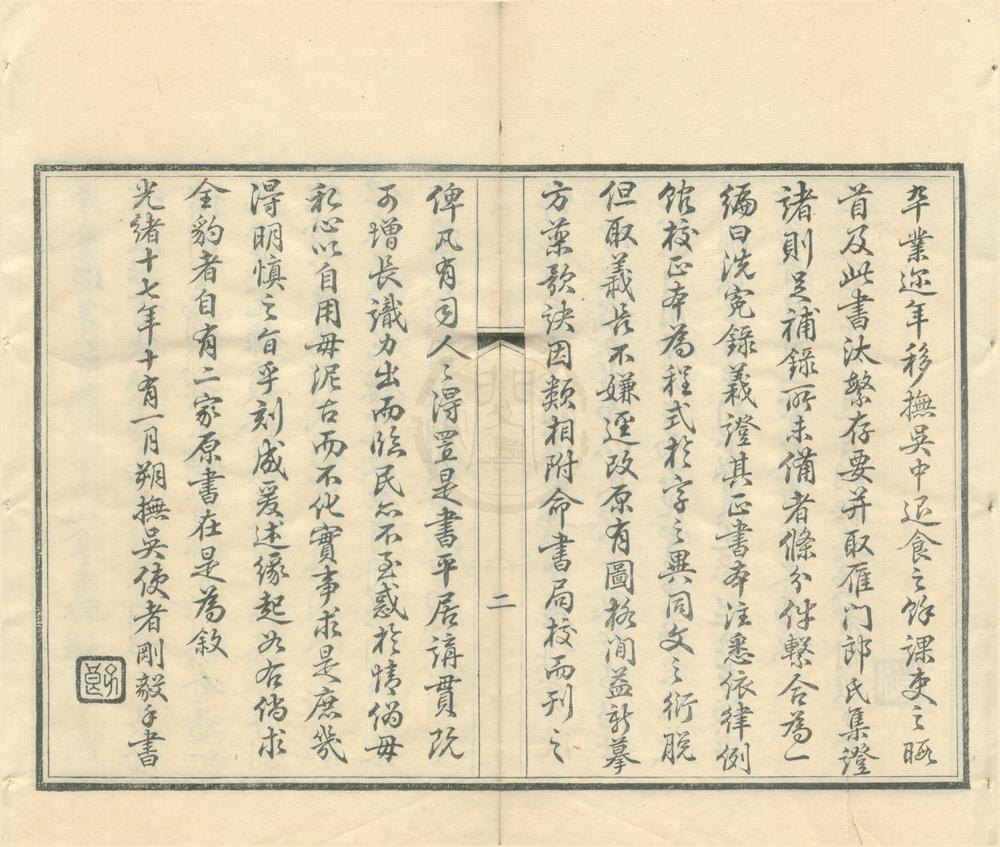 卒業迩年移撫吳中退食之餘課吏之暇
首及此書汰繁存要并取雁门郎氏集證
諸則足補錄所未備者條分件繫合為一
編曰洗冤錄義證其正書本注悉依律例
館校正本為程式於字之異同文之衍脫
但取義長不嫌逕改原有圖格間益新摹
方藥歌訣因類相附命書局校而刊之
二
俾凡有司人之得置是書平居講貫既
可增長識力出而臨民亦不至惑於情偽毋
私心以自用毋泥古而不化實事求是庶幾
得明慎之旨乎刻成爰述緣起如右倘求
全豹者自有二家原書在是為敘
光緒十七年十有一月朔撫吳使者剛毅手書